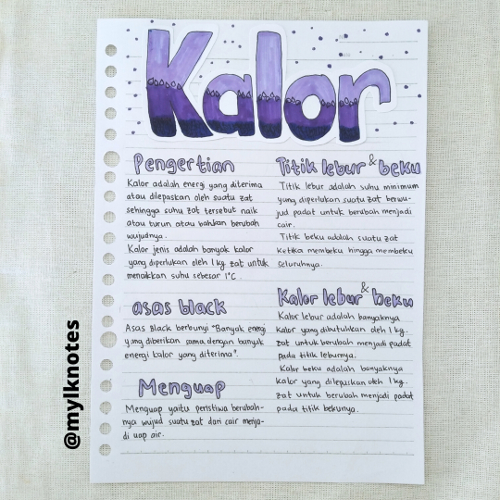 Kalor
Pengertian
Kalor adalah energi yang diterima
atau dilepaskan oleh suatu zat
sehingga suhu zat tersebut naik
atau turun atau bahkan berubah
wujudnya.
Kalor jenis adalah banyak kalor
yang diperlukan oleh 1 kg zat untuk
menaikkan suhu sebesar 1°C.
asas black
Asas Black berbunyi "Banyak energi
yang diberikan sama dengan banyak
energi kalor yang diterima".
Menguap
Menguap yaitu peristiwa berubah-
nya wujud suatu zat dari cair menja-
di uap air.
Titik lebur & beku
Titik lebur adalah suhu minimum
yang diperlukan suatu zat berwu-
jud padat untuk berubah menjadi
cair.
Titik beku adalah suatu zat
ketika membeku hingga membeku
seluruhnya.
Kalor lebur & beku
Kalor lebur adalah banyaknya
kalor yang dibutuhkan oleh 1 kg.
zat untuk berubah menjadi padat
pada titik leburnya.
Kalor beku adalah banyaknya
kalor yang dilepaskan oleh 1 kg.
zat untuk berubah menjadi padat
pada titik bekunya.
@mylknotes